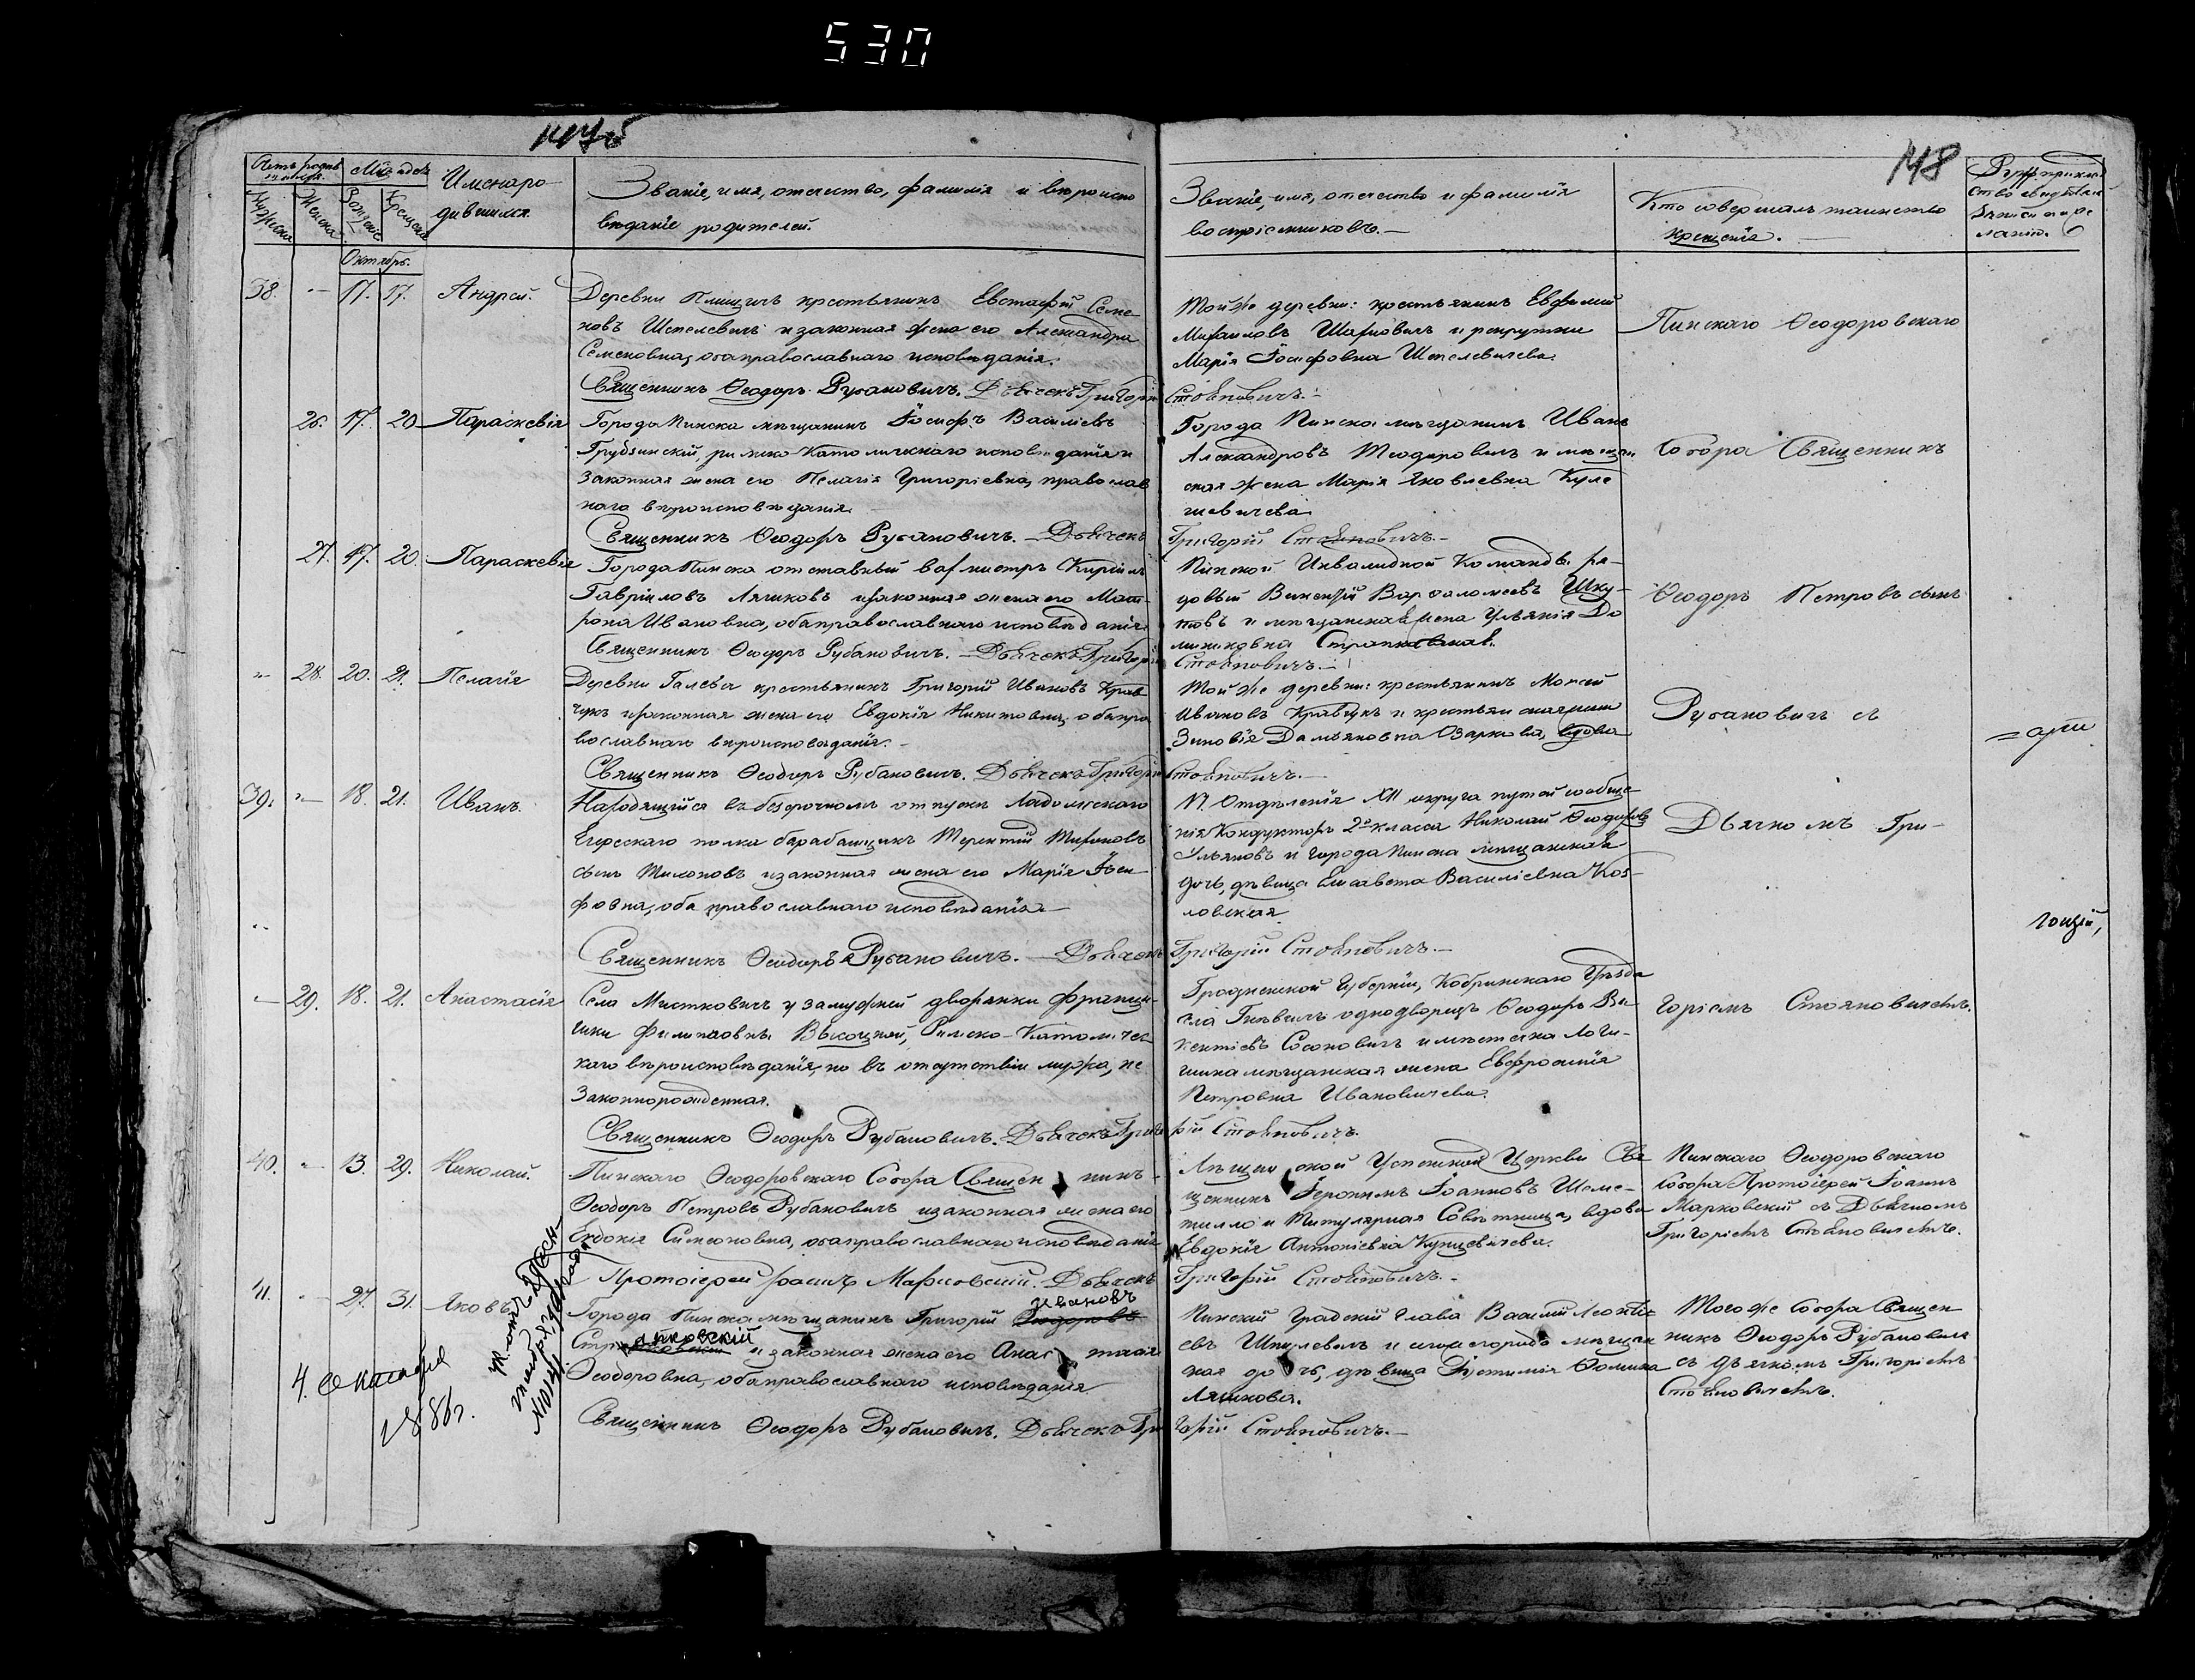 530
148
Счетъ родив
шихся.
Мужеска
Женска
Мѣс. и день
Рожденіе
Крещеніе
Имена ро
дившихся.
Званіе, имя, отчество, фамилія и вѣроиспо
вѣданіе родителей.
Званіе, имя, отчество и фамилія
воспріемниковъ.—
Кто совершалъ таинство
крещенія.—
Октябрь.
38. — 17. 17. Андрей.
Деревни крестьянинъ Евстафій Семе
новъ Шепелевичъ и законная жена его Александра
Семеновна, оба православнаго исповѣданія.
Священникъ Ѳеодоръ Рубановичъ. Дьячекъ Григорій Стояновичъ.—
Той же деревни: крестьянинъ Евфимій
Михаиловъ и рекрутка
Марія Іосифовна Шепелевичева.
Пинскаго Ѳеодоровскаго
26. 17. 20. Параскевія
Города Пинска мѣщанинъ Іосифъ Василіевъ
Грудзинскій, римско-католическаго исповѣданія и
законная жена его Пелагія Григоріевна, православ
наго вѣроисповѣданія.
Священникъ Ѳеодоръ Рубановичъ.—Дьячекъ Григорій Стояновичъ.—
Города Пинска мѣщанинъ Иванъ
Александровъ Теодоровичъ и мѣщан
ская жена Марія Яковлевна Куле
шевичева
Собора Священникъ
27. 17. 20. Параскевія
Города Пинска отставный вахмистръ Кирилъ
Гавріиловъ Ляшковъ и законная жена его Мат-
рона Ивановна, оба православнаго исповѣданія.
Священникъ Ѳеодоръ Рубановичъ.—Дьячекъ Григорій Стояновичъ.—
Пинской Инвалидной Команды ря-
довый Викентій Варѳоломеевъ Шку-
товъ и мѣщанская жена Ульянія До
миниковна
Ѳеодоръ Петровъ сынъ
28. 20. 21. Пелагія
Деревни Галева крестьянинъ Григорій Ивановъ Крав
чукъ и законная жена его Евдокія Никитовна, оба пра
вославнаго вѣроисповѣданія.—
Священникъ Ѳеодоръ Рубановичъ. Дьячекъ Григорій Стояновичъ.—
Той же деревни: крестьянинъ Моисей
Ивановъ Кравчукъ и крестьянская
Зиновія Демьяновна вдова
Рубановичъ съ
39. — 18. 21. Иванъ
Находящійся въ безсрочномъ отпуску Ладожскаго
Егерскаго полка барабанщикъ Терентій Тихоновъ
сынъ Тихоновъ и законная жена его Марія Іоси-
фовна, оба православнаго исповѣданія.—
Священникъ Ѳеодоръ Рубановичъ.—Дьячекъ Григорій Стояновичъ.—
Отдѣленія XII округа путей сообще-
нія Кондукторъ 2го класса Николай Ѳеодоровъ
Ульяновъ и города Пинска мѣщанская
дочь, дѣвица Елисавета Василіевна Коз-
ловская
Дьячкомъ Гри-
— 29. 18. 21. Анастасія
Села Мистковичъ у замужней дворянки Францыш-
ки Филиповны Высоцкой, Римско-Католичес-
каго вѣроисповѣданія, но въ отсутствіи мужа, не
законнорожденная.
Священникъ Ѳеодоръ Рубановичъ. Дьячекъ Григорій Стояновичъ.
Гродненской Губерніи, Кобринскаго Уѣзда
села однодворецъ Ѳеодоръ Ви-
кентіевъ Сосновичъ и мѣстечка Логи-
шина мѣщанская жена Евфросинія
Петровна Ивановичева.
горіемъ Стояновичемъ.
40. — 13. 29. Николай.
Пинскаго Ѳеодоровскаго Собора Священникъ
Ѳеодоръ Петровъ Рубановичъ и законная жена его
Евдокія Симеоновна, оба православнаго исповѣданія
Протоіерей Іоаннъ Марковскій. Дьячекъ Григорій Стояновичъ.—
Лѣщинской Успенской Церкви Свя
щенникъ Іеронимъ Іоанновъ Шеме-
тилло и Титулярная Совѣтница, вдова
Евдокія Антоніевна Купцевичева.
Пинскаго Ѳеодоровскаго
Собора Протоіерей Іоаннъ
Марковскій съ Дьячкомъ
Григоріемъ Стояновичемъ.
41. — 27. 31. Яковъ
Ивановъ
Города Пинска мѣщанинъ Григорій Ѳеодоровъ
и законная жена его Анастасія
Ѳеодоровна, оба православнаго исповѣданія
Священникъ Ѳеодоръ Рубановичъ. Дьячекъ Григорій Стояновичъ.—
Пинскій Градскій Глава Василій Леонтіе
евъ и сего города мѣщан
кая дочь, дѣвица Ѳомина
Ляшкова.
Того же Собора Священ
никъ Ѳеодоръ Рубановичъ
съ дьячкомъ Григоріемъ
Стояновичемъ.
4. Октября